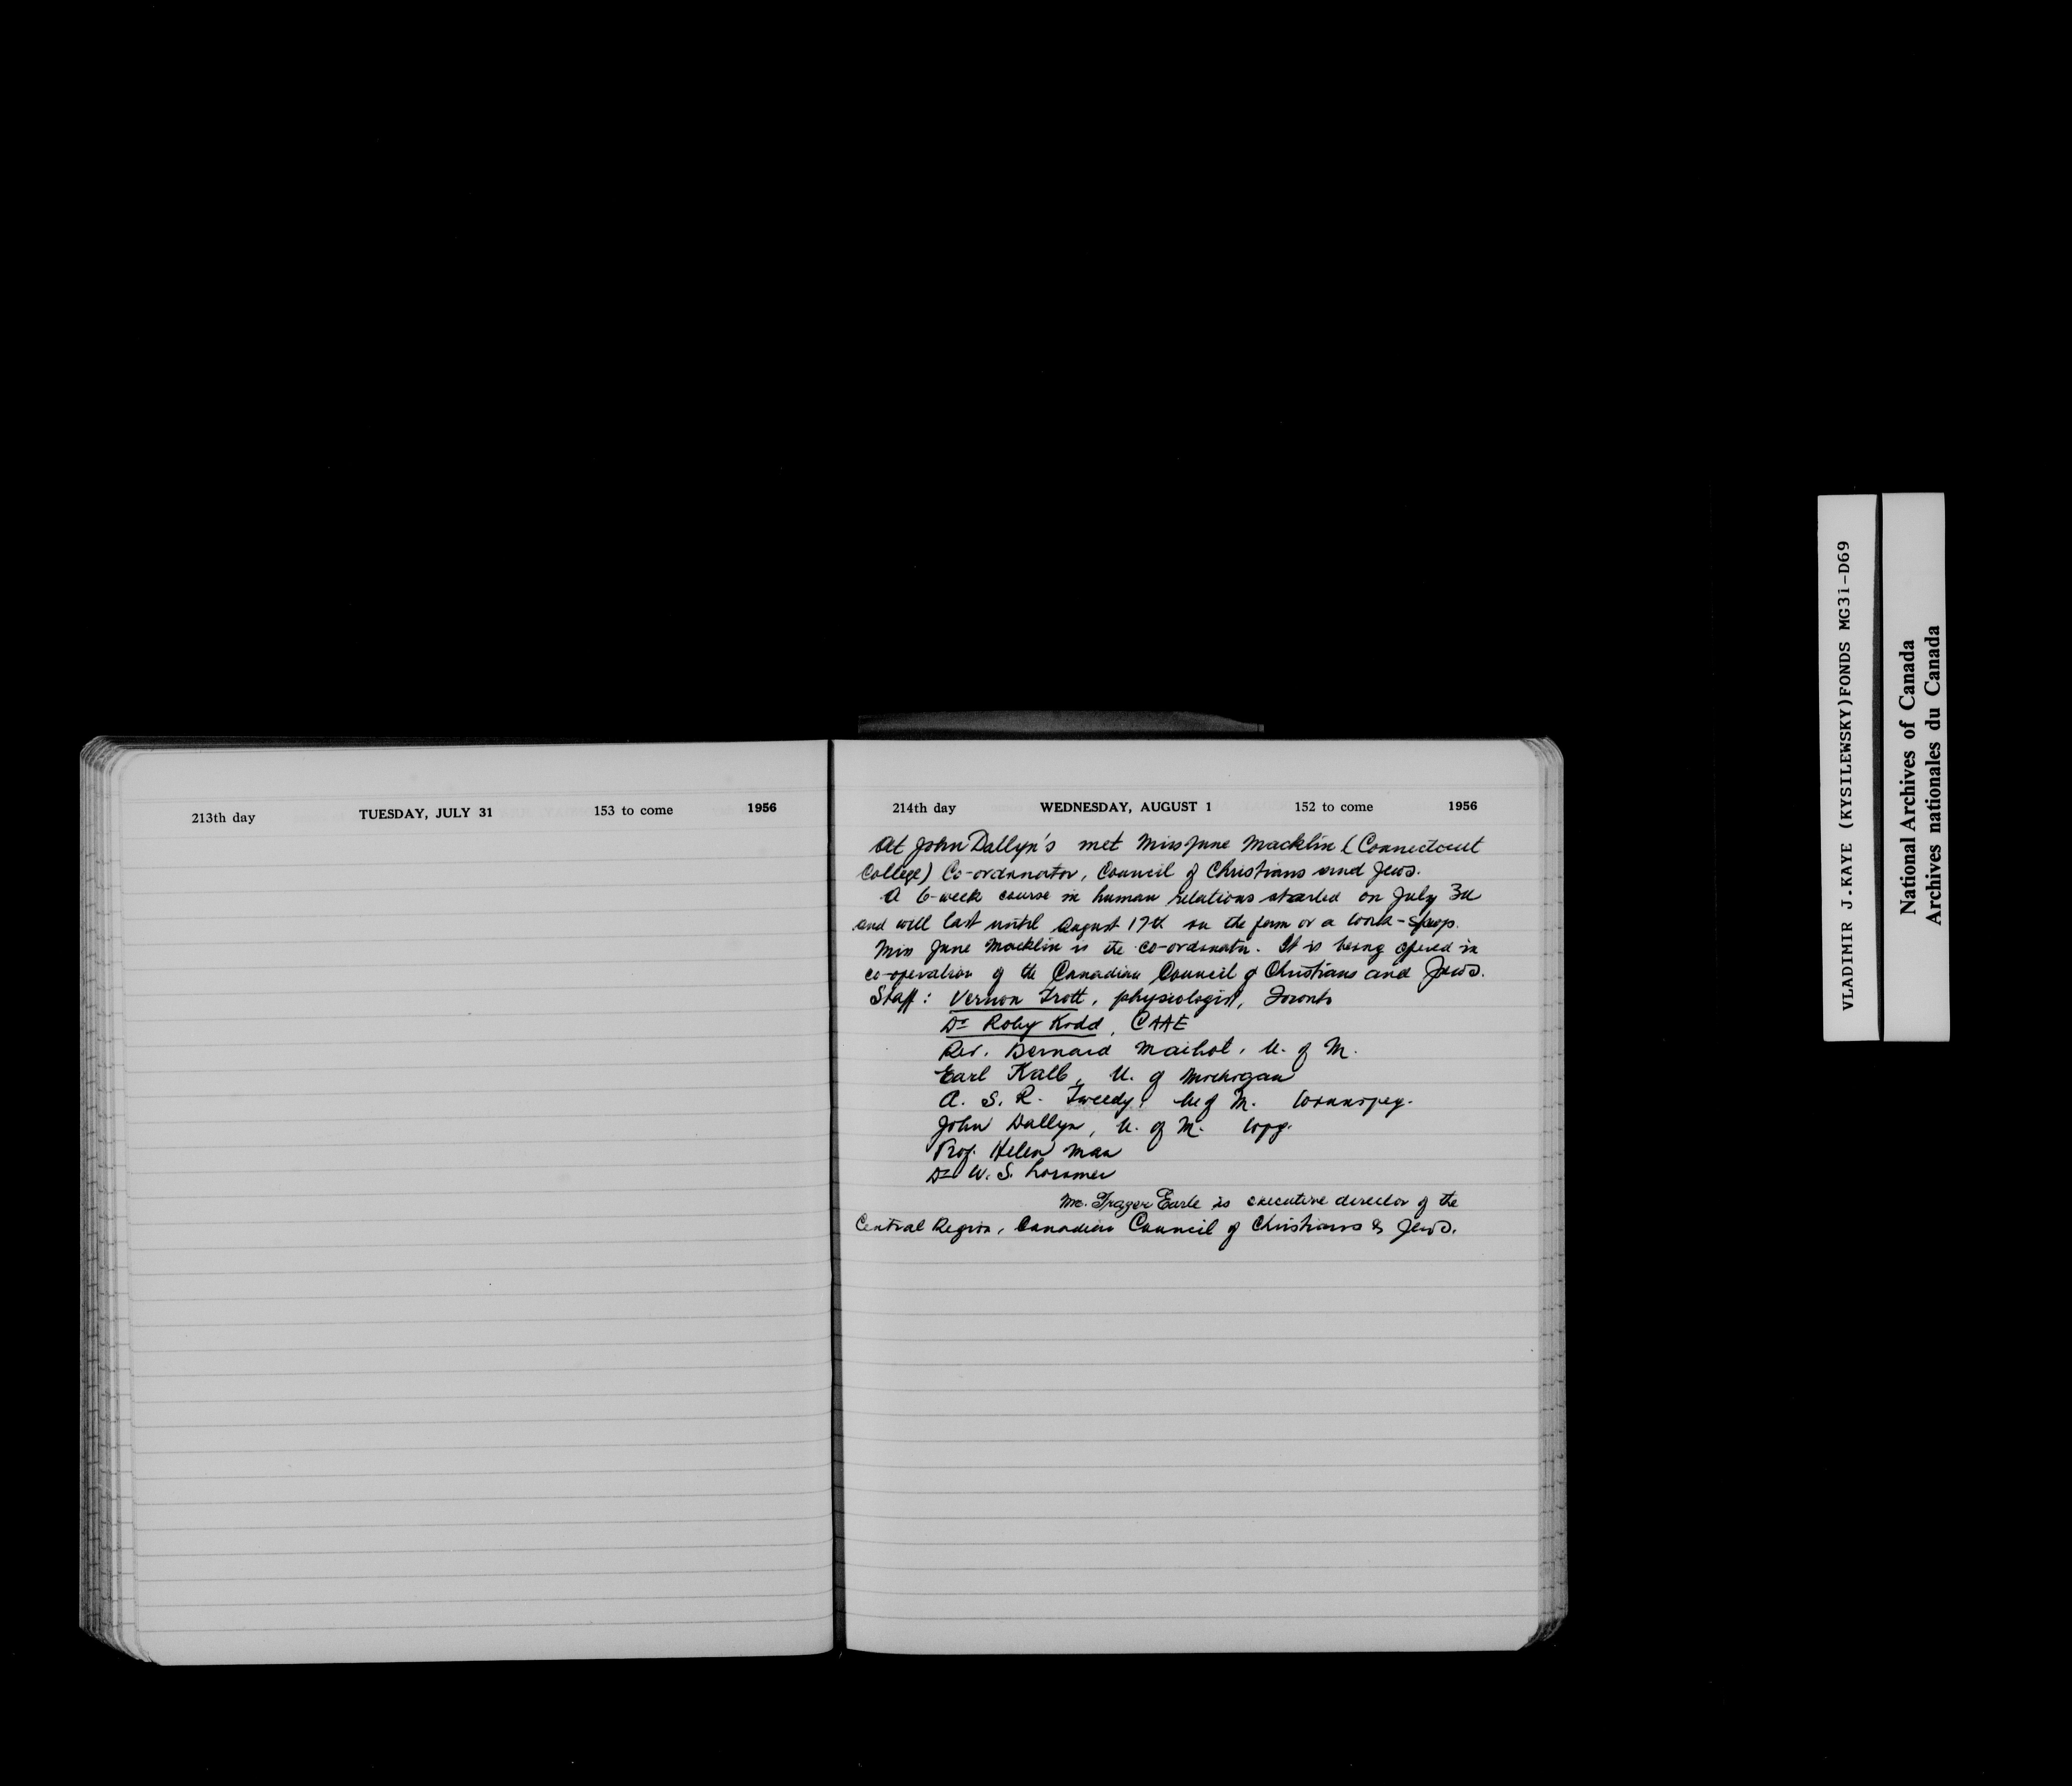 213th day TUESDAY, JULY 31 153 to come 1956
214th day WEDNESDAY, AUGUST 1 152 to come 1956
At John Dallyn's met Miss June Macklin (Connecticut
College) Co-ordinator, Council of Christians and Jews.
A 6-week course in human relations started on July 3d
and will last until August 17th in the form of a work-shop.
Miss June Macklin is the co-ordinator. It is being offered in
co-operation of the Canadian Council of Christians and Jews.
Staff: Vernon Trott, physiologist, Toronto
Dr Roby Kidd, CAAE
Rev. Bernard Mailhot, U. of M.
Earl Kalb, U. of Michigan
A. S. R. Tweedy, U of M. Winnipeg.
John Dallyn, U. of M. Wpg.
Prof. Helen Mann
Dr W. S. Lorimer
Mr. Frazer Earle is executive director of the
Central Region, Canadian Council of Christians & Jews.
VLADIMIR J.KAYE (KYSILEWSKY)FONDS MG31-D69
National Archives of Canada
Archives nationales du Canada